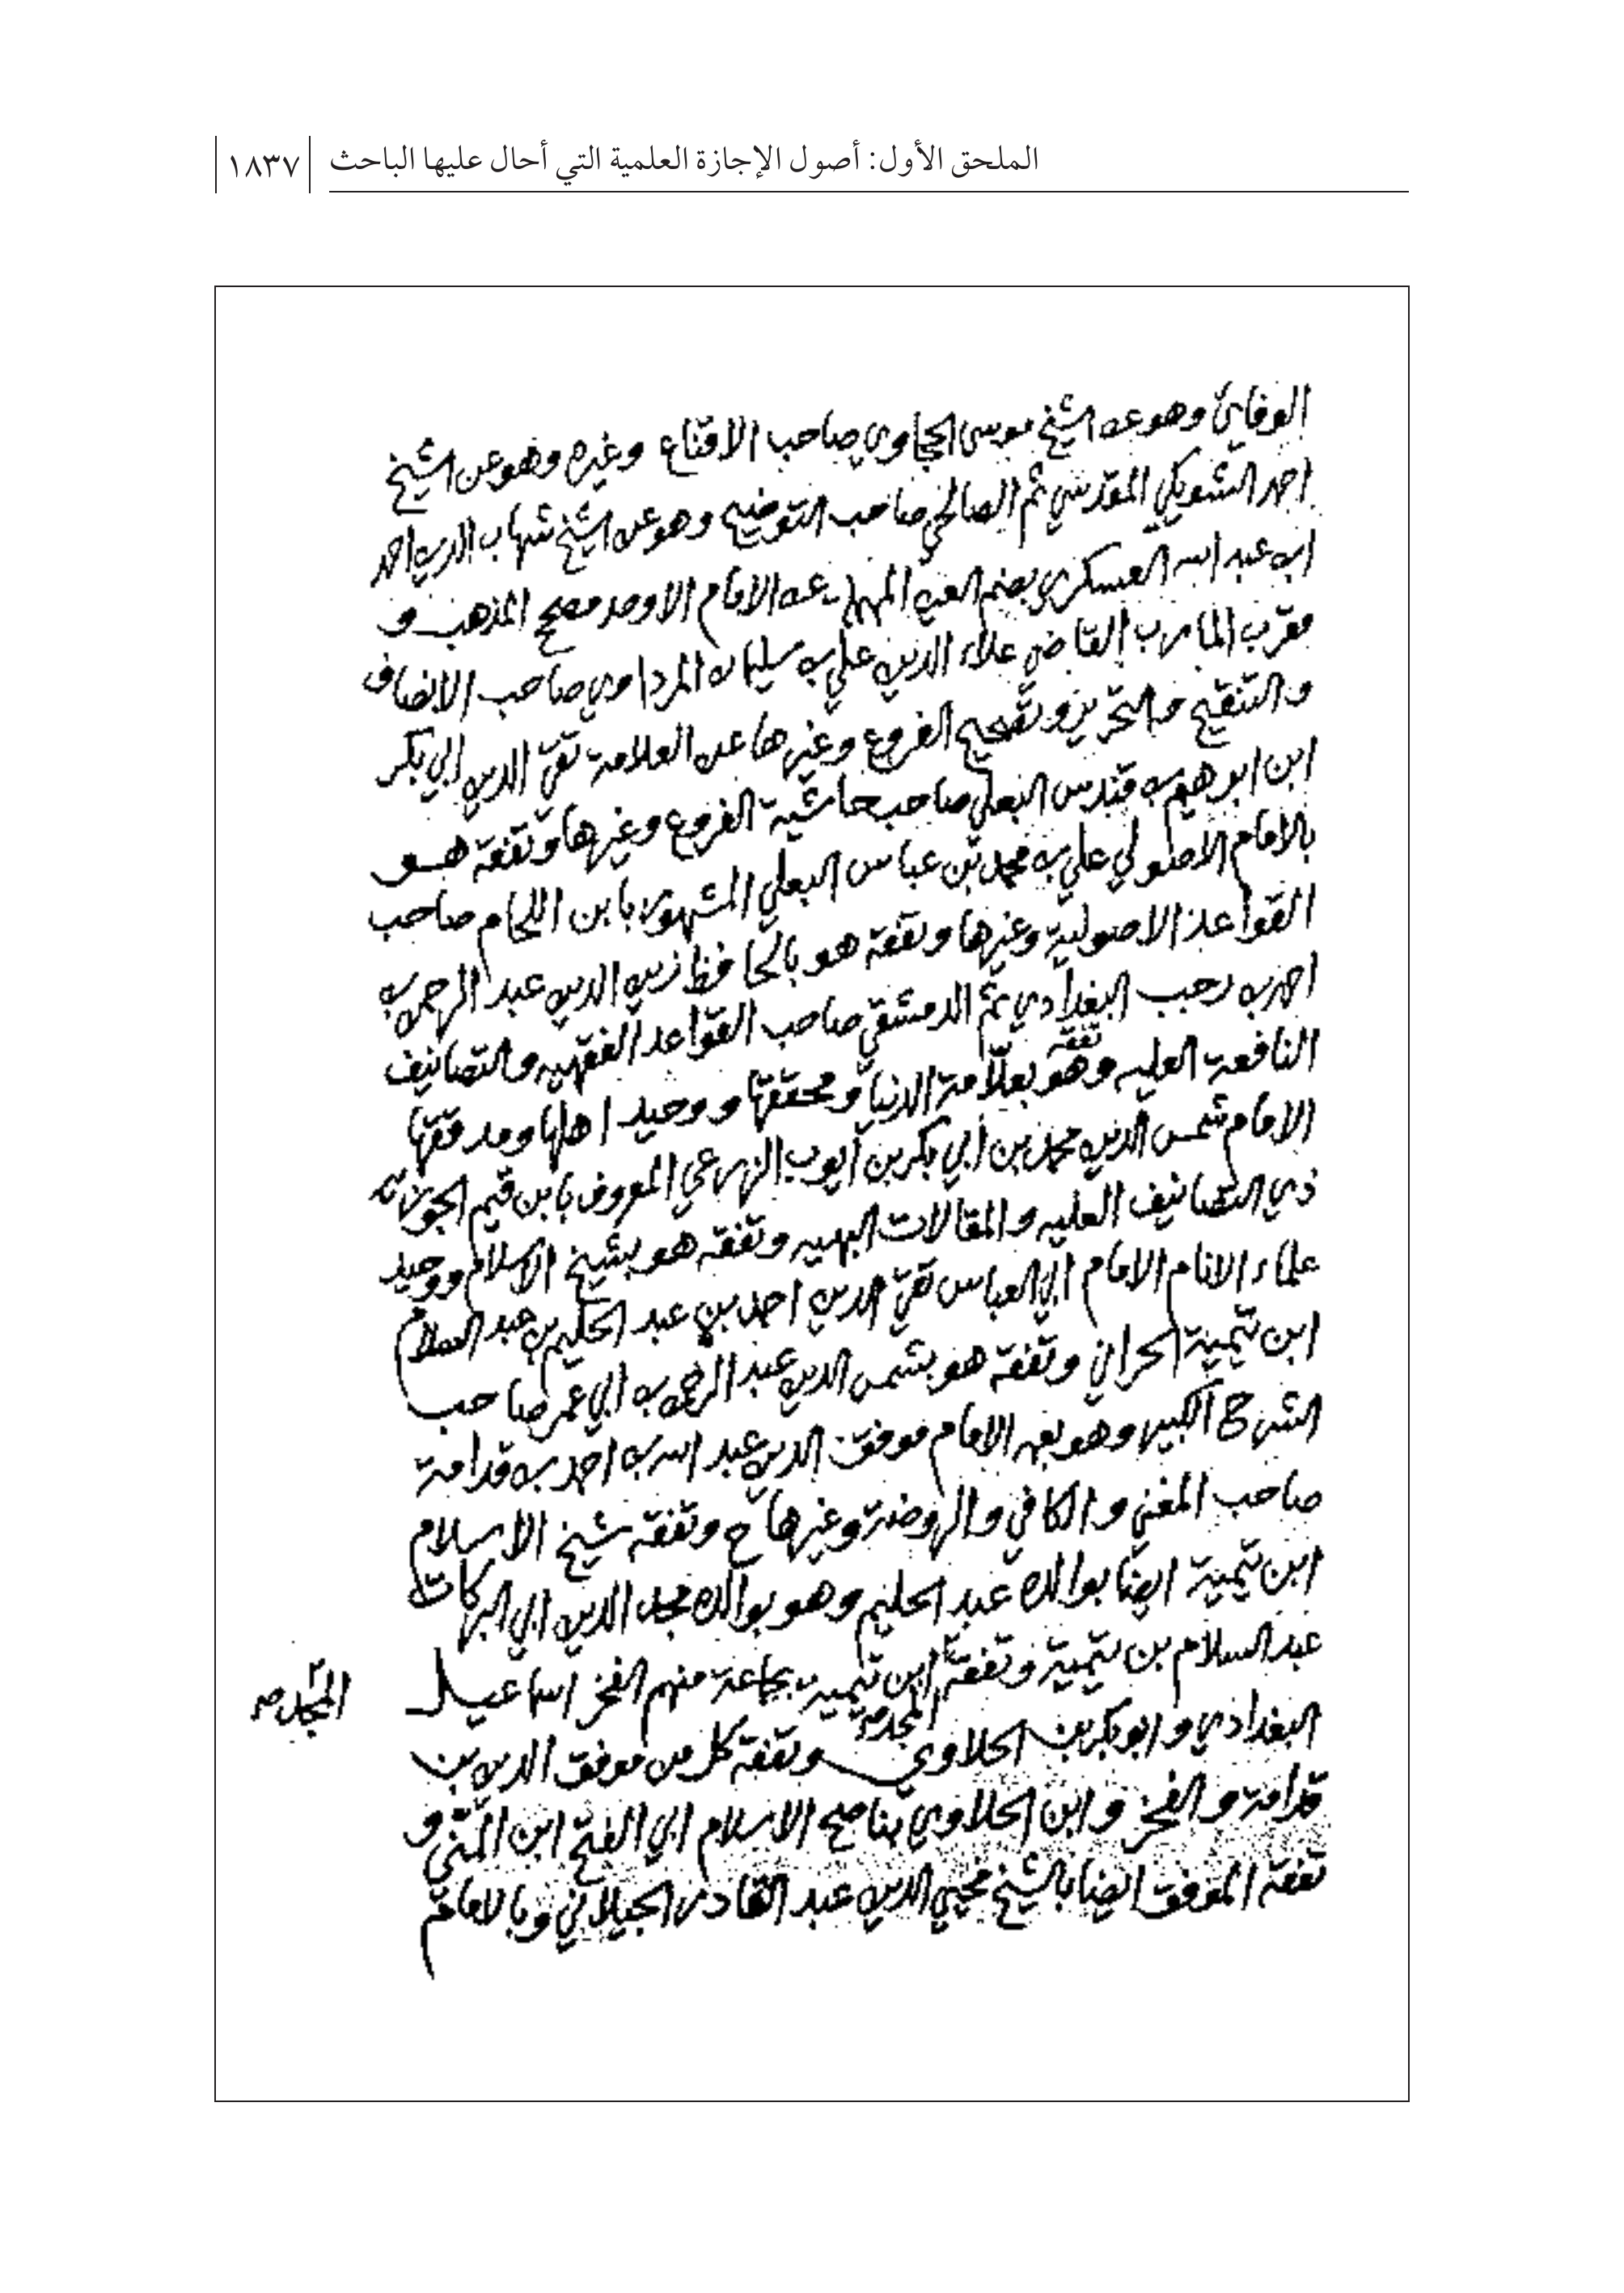 الملحق الأول: أصول الإجازة العلمية التي أحال عليها الباحث ١٨٣٧
الوفائي وهو عن الشيخ موسى الحجاوي صاحب الاقناع وغيره وهو عن الشيخ
احمد الشويكي المقدسي ثم الصالحي صاحب التوضيح وهو عن الشيخ شهاب الدين احمد
ابن عبد الله العسكري بضم العين المهملة عن الامام الاوحد مصحح المذهب و
مقرب المارب القاضي علاء الدين علي بن سليمان المرداوي صاحب الانصاف
والتنقيح والتحرير وتصحيح الفروع وغيرها عن العلامة تقي الدين ابي بكر
ابن ابرهيم بن قندس البعلي صاحب حاشية الفروع وغيرها وتفقه هو
بالامام الاصولي علي بن محمد بن عباس البعلي المشهور بابن اللحام صاحب
القواعد الاصولية وغيرها وتفقه هو بالحافظ زين الدين عبد الرحمن بن
احمد بن رجب البغدادي ثم الدمشقي صاحب القواعد الفقهيه والتصانيف
النافعة العليه وهو تفقه بعلامة الدنيا ومحققها ووحيد اهلها ومدققها
الامام شمس الدين محمد بن ابي بكر بن ايوب الزرعي المعروف بابن قيم الجوزية
ذي التصانيف العليه والمقالات البهيه وتفقه هو بشيخ الاسلام ووحيد
علماء الانام الامام ابي العباس تقي الدين احمد بن عبد الحليم بن عبد السلام
ابن تيمية الحراني وتفقه هو بشمس الدين عبد الرحمن بن ابي عمر صاحب
الشرح الكبير وهو بعمه الامام موفق الدين عبد الله بن احمد بن قدامة
صاحب المغني والكافي والروضة وغيرها ح وتفقه شيخ الاسلام
ابن تيمية ايضا بوالده عبد الحليم وهو بوالده مجد الدين ابي البركات
عبد السلام بن تيمية وتفقه ابن تيمية المجد بجماعة منهم الفخر اسماعيل
المجد
البغدادي وابو بكر بن الحلاوي وتفقه كل من موفق الدين بن
قدامة والفخر وابن الحلاوي بناصح الاسلام ابي الفتح ابن المني و
تفقه الموفق ايضا بالشيخ محيي الدين عبد القادر الجيلاني وبالامام